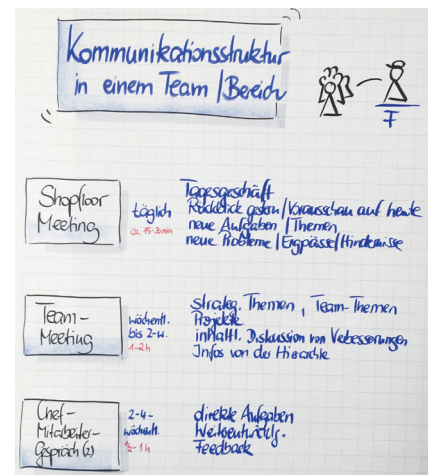 Kommunikationsstruktur
in einem Team / Bereich
F
Shopfloor
Meeting
täglich
ca. 15-30min
Tagesgeschäft
Rückblick gestern / Vorausschau auf heute
neue Aufgaben / Themen
neue Probleme / Engpässe / Hindernisse
Team-
Meeting
wöchentl.
bis 2-w.
1-2h
strateg. Themen, Team-Themen
Projekte
inhaltl. Diskussion von Verbesserungen
Infos von der Hierarchie
Chef-
Mitarbeiter-
Gespräch (2)
2-4-
wöchentl.
½-1h
direkte Aufgaben
Weiterentwicklg.
Feedback